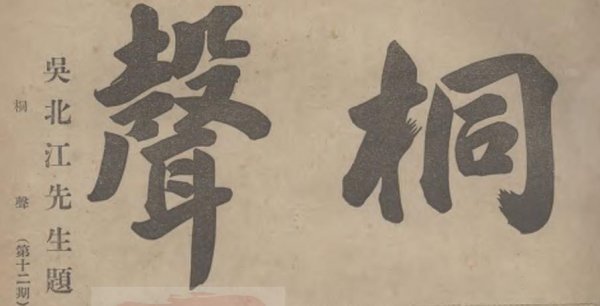 桐聲
吳北江先生題
桐聲（第十二期）